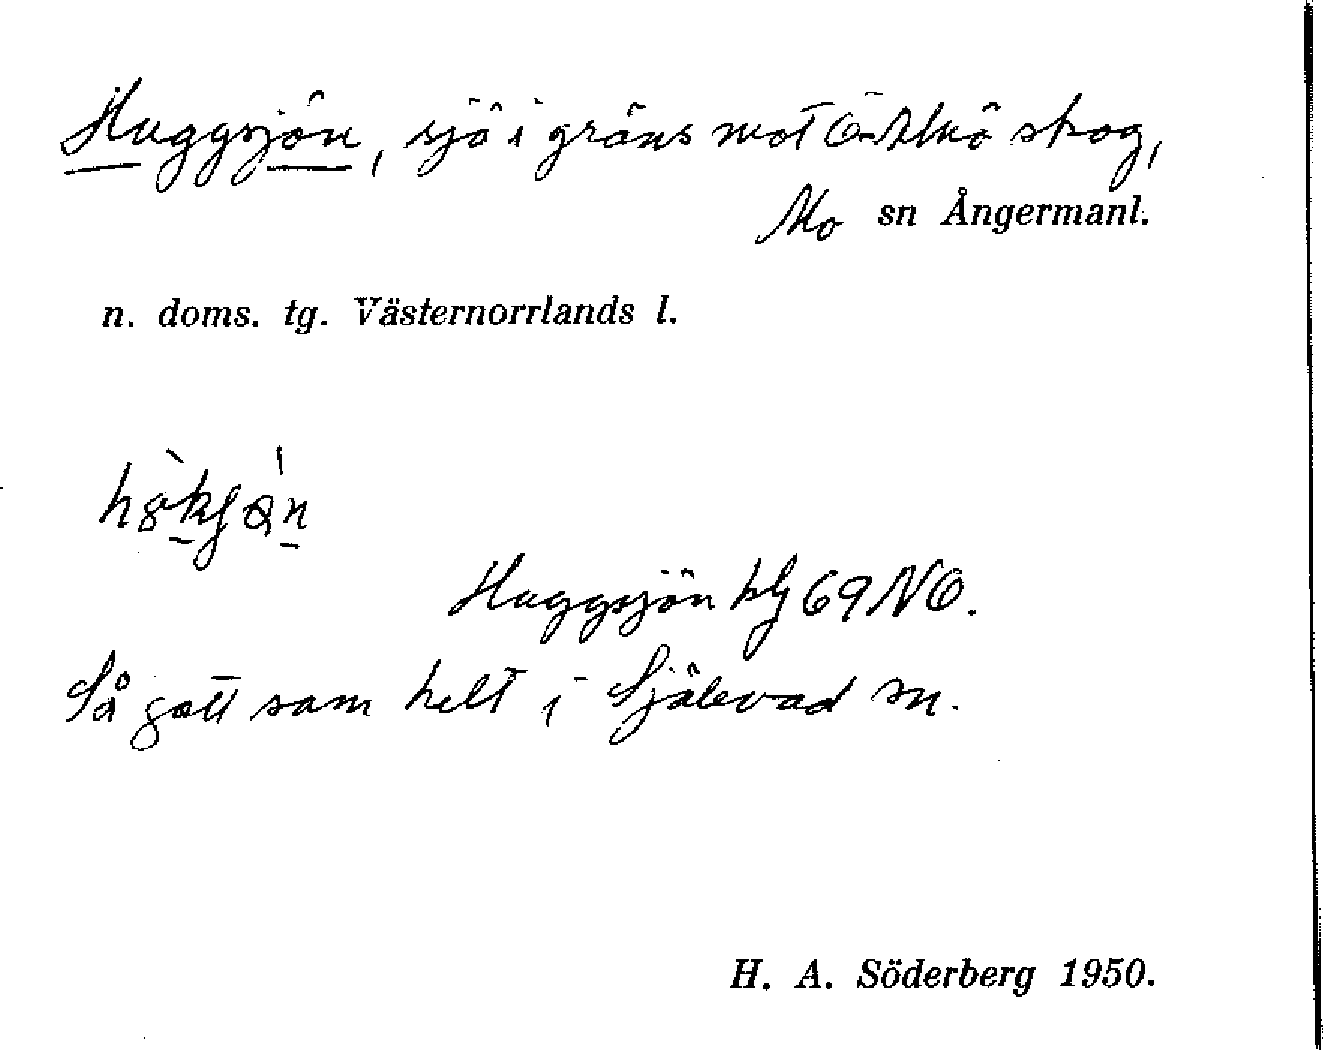 Huggsjön, sjö i gräns mot Ö-Alnö skog,
Mo sn Ångermanl.
n. doms. tg. Västernorrlands l.
Huggsjön kbl 69 NO.
Så gott som helt i Själevad sn.
H. A. Söderberg 1950.